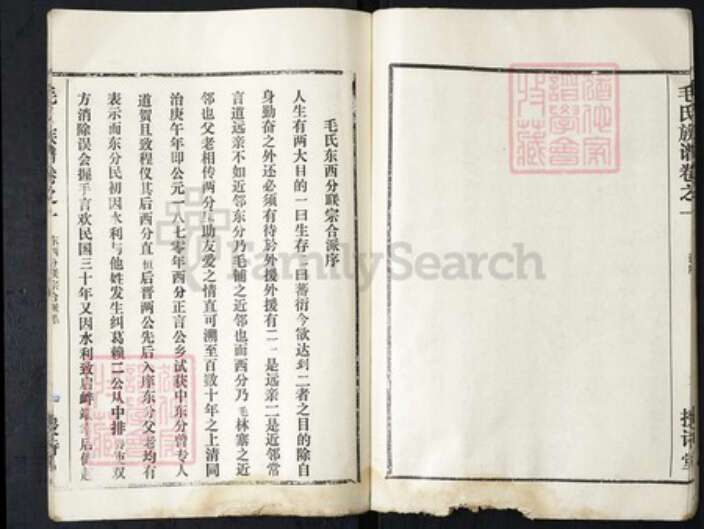 毛氏族谱卷之一
毛氏东西分联宗合派序
人生有两大目的一曰生存一曰蕃衍今欲达到二者之目的除自
身勤奋之外还必须有待於外援外援有二一是远亲二是近邻常
言道远亲不如近邻东分乃毛铺之近邻也而西分乃毛林寨之近
邻也父老相传两分互助友爱之情直可溯至百数十年之上清同
治庚午年即公元一八七零年西分正言公乡试获中东分曾专人
道贺且致程仪其后西分直 后晋两公先后入庠东分父老均有
表示而东分民初因水利与他姓发生纠葛赖二公从中排 双
方消除误会握手言欢民国三十年又因水利致启衅端 后
毛氏族谱卷之一
东西分联宗合派序
FamilySearch